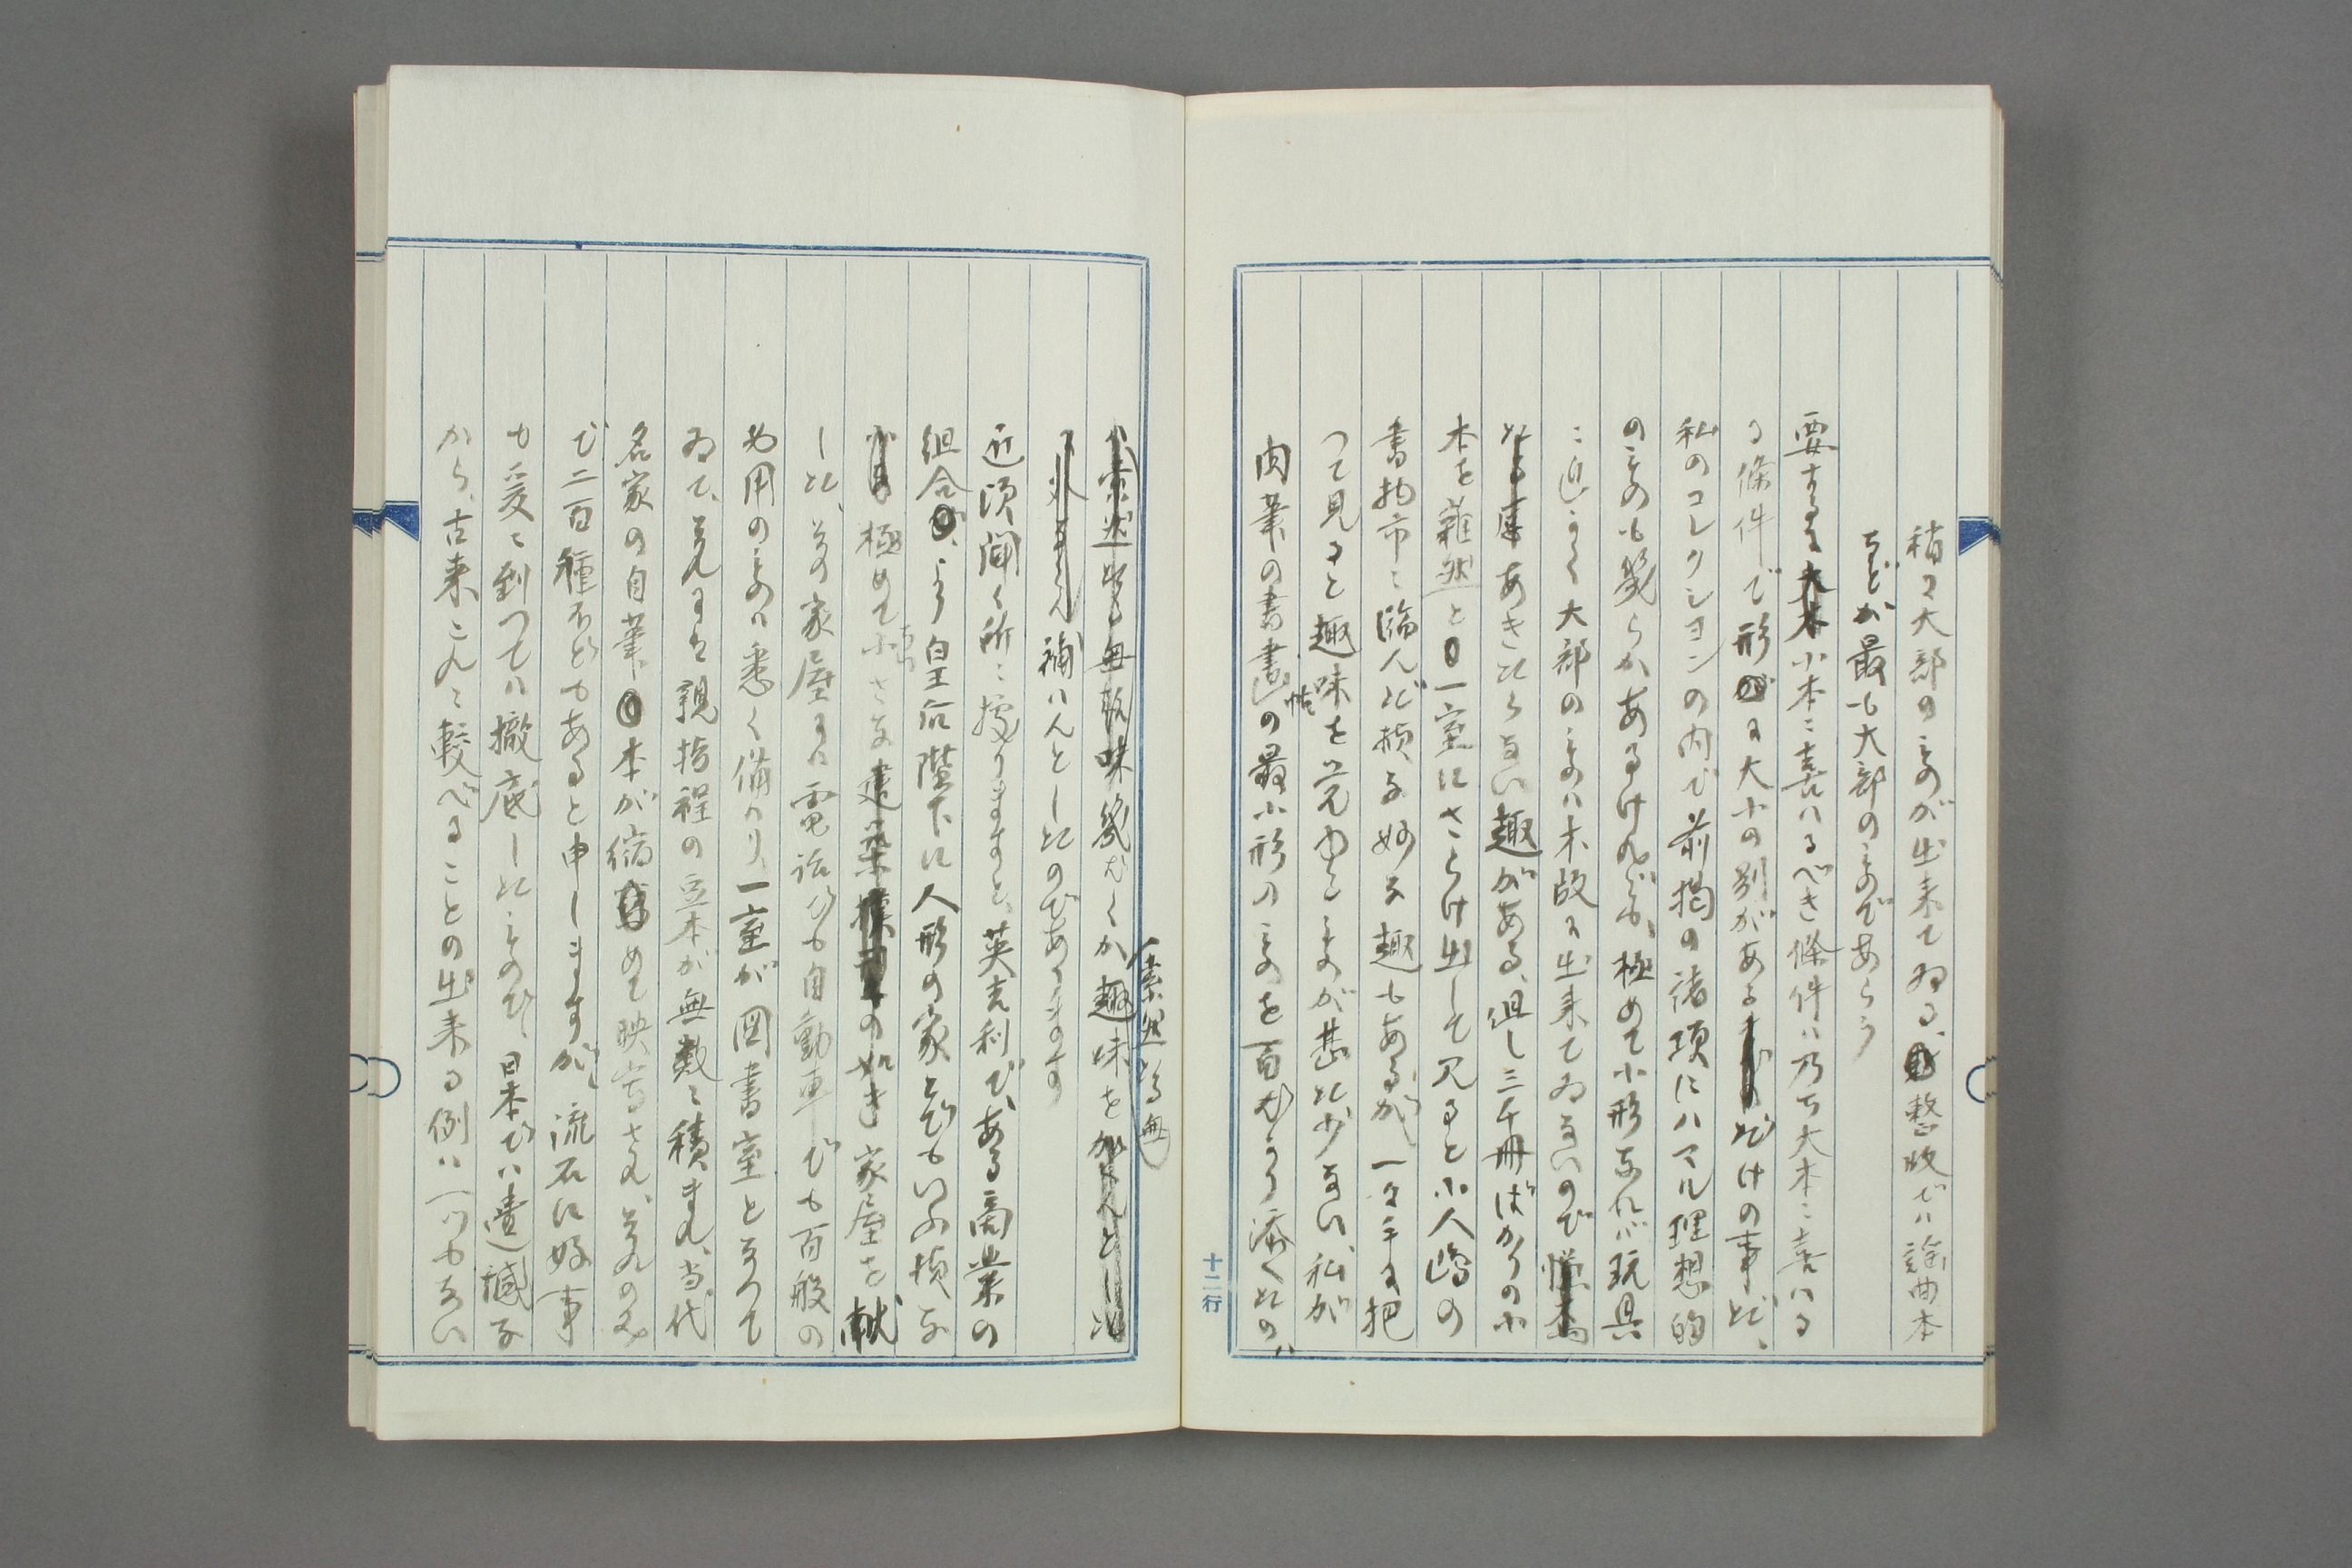 稍々大部のものが出来てゐる、整版では謡曲本
などが最も大部のものであらう
要するに小本に喜ハるべき條件ハ乃ち大本に喜ハる
る條件で形に大小の別があるだけの事だ、
私のコレクションの内で前掲の諸項にハマル理想的
のものも幾らかあるけれども、極めて小形なれバ玩具
に近うく大部のものハ未故に出来てゐないので
あきたらない趣がある、但し三千冊ばかりの小
本を雑然と一室にさらけ出して見ると小人嶋の
書物市に臨んだ様な妙な趣もあるが、一々手に把
つて見ると趣味を覚ゆるものが甚だ少ない、私が
肉筆の書画帖の最小形のものを百むかり添へたのハ
索然たる無
趣味を幾むくか趣味を
補ハんとしたのであります
近頃聞く所に據りますと、英吉利で、ある商業の
組合から皇后陛下に人形の家とでもいふ様な
極めて小さな建築の如き家屋を献
した、其の家屋にハ電話でも自動車でも百般の
お用のものハ悉く備ハり、一室が図書室となつて
ゐて、それには親指程の豆本が無数に積まれ、当代
名家の自筆本が縮めて映写され、其のみ
で二百種ほどもあると申しますが、流石に好事
も爰に到つてハ撤底したもので、日本でハ遺憾な
から、古来これに較べることの出来る例ハ一ツもない
十二行